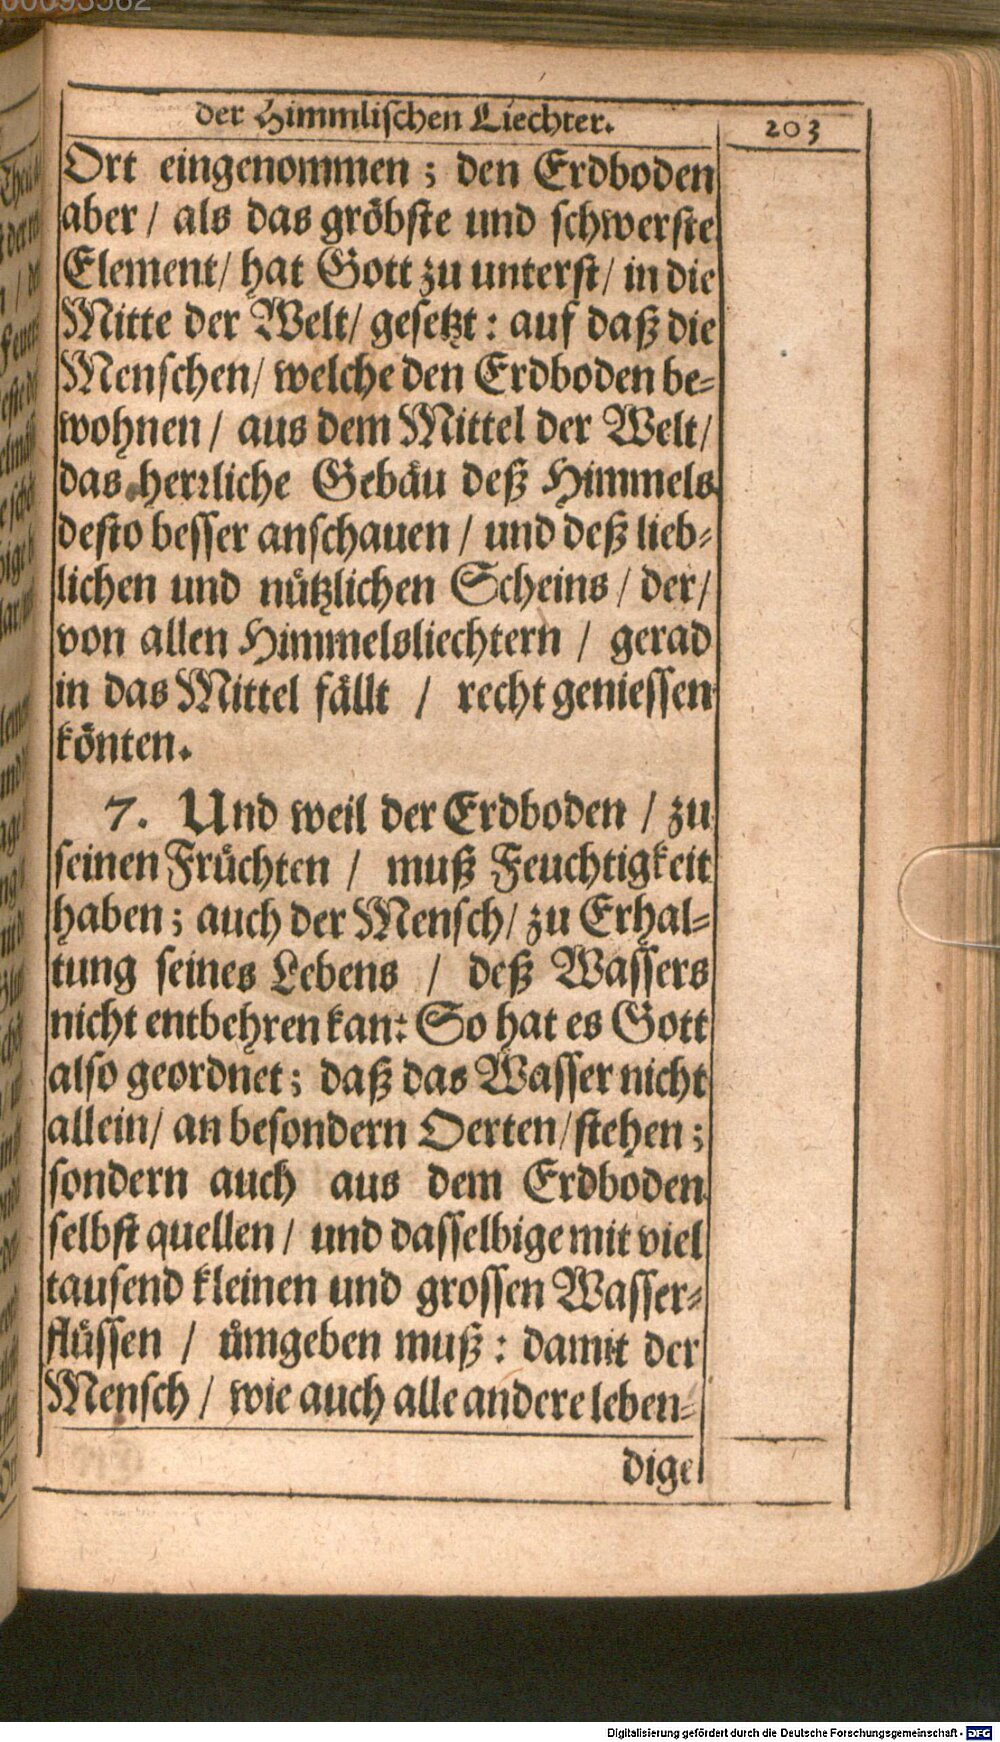 der Himmlischen Liechter.
203
Ort eingenommen; den Erdboden
aber / als das gröbste und schwerste
Element / hat Gott zu unterst / in die
Mitte der Welt / gesetzt: auf daß die
Menschen / welche den Erdboden be-
wohnen / aus dem Mittel der Welt /
das herrliche Gebäu deß Himmels
desto besser anschauen / und deß lieb-
lichen und nützlichen Scheins / der /
von allen Himmelsliechtern / gerad
in das Mittel fällt / recht geniessen
könten.
7. Und weil der Erdboden / zu
seinen Früchten / muß Feuchtigkeit
haben; auch der Mensch / zu Erhal-
tung seines Lebens / deß Wassers
nicht entbehren kan: So hat es Gott
also geordnet; daß das Wasser nicht
allein / an besondern Oerten / stehen;
sondern auch aus dem Erdboden
selbst quellen / und dasselbige mit viel
tausend kleinen und grossen Wasser-
flüssen / ümgeben muß: damit der
Mensch / wie auch alle andere leben-
dige
Digitalisierung gefördert durch die Deutsche Forschungsgemeinschaft - DFG